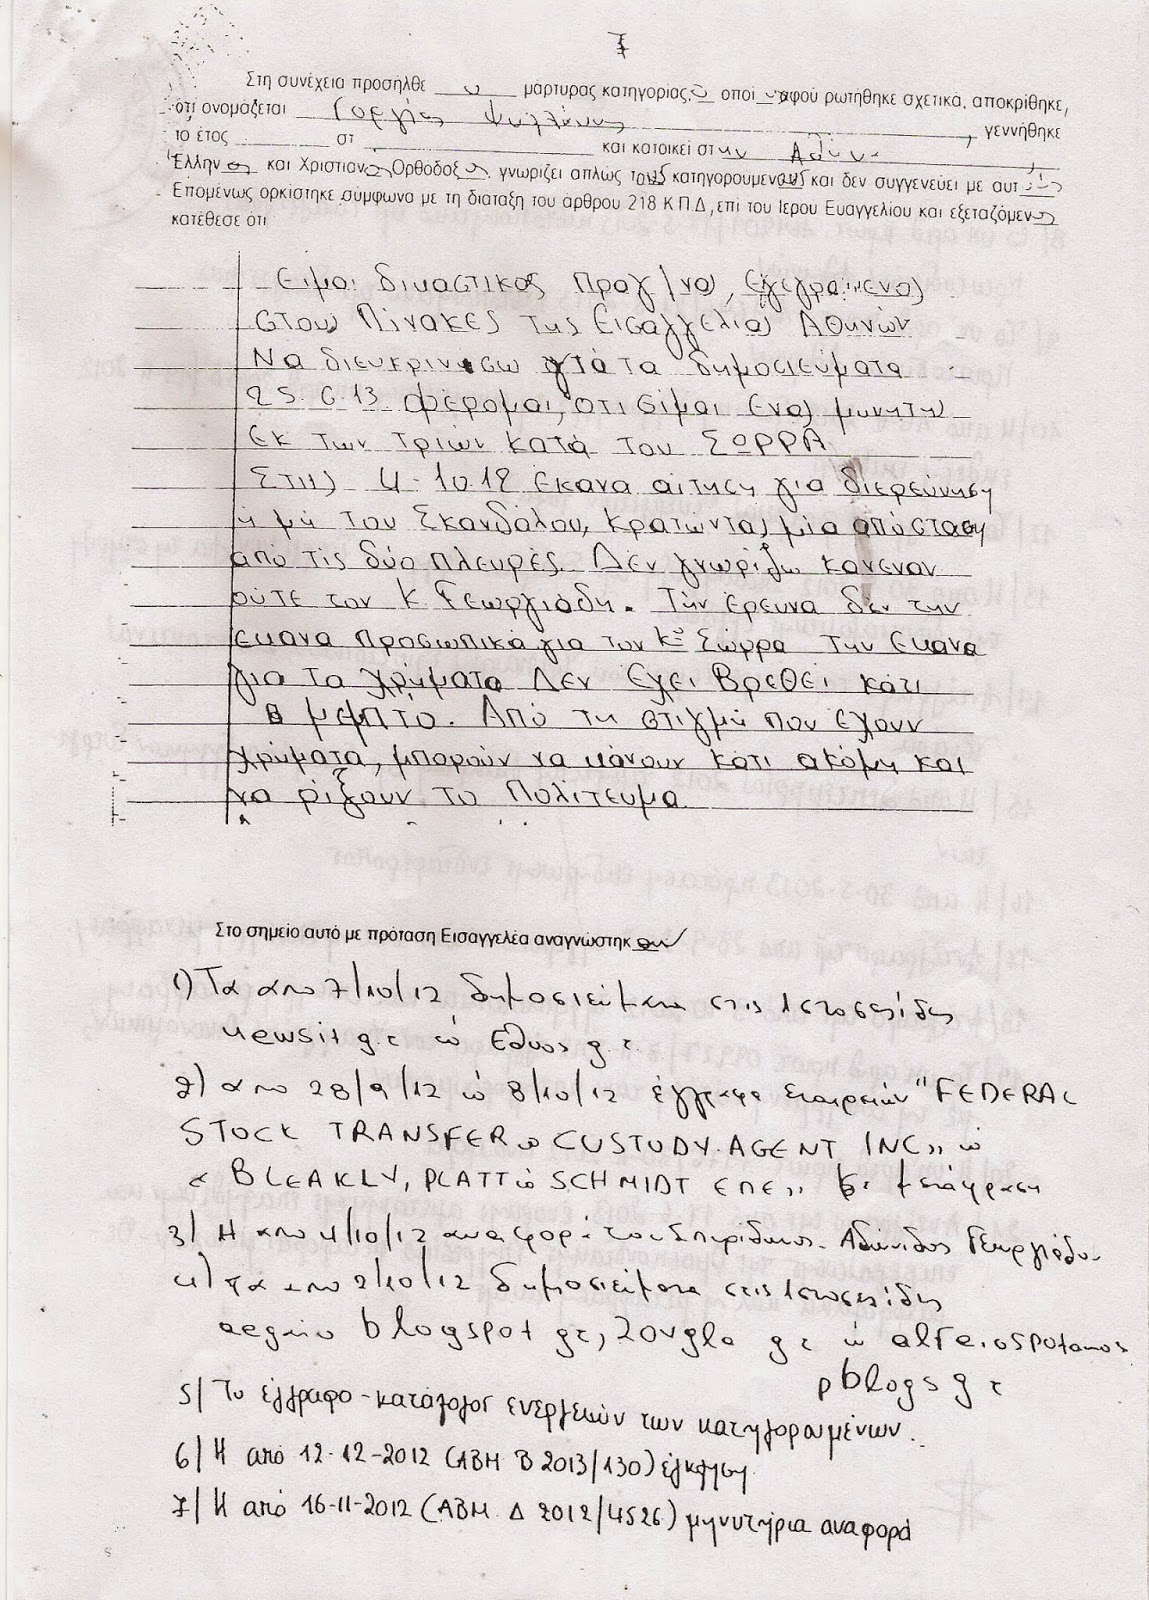 7
Στη συνέχεια προσήλθε ο μάρτυρας κατηγορίας, ο οποί ος αφού ρωτήθηκε σχετικά, αποκρίθηκε,
ότι ονομάζεται Γοργίας , γεννήθηκε
το έτος στ και κατοικεί στην Αθήνα
Έλλην και Χριστιαν Ορθόδοξ , γνωρίζει απλώς τους κατηγορουμένους και δεν συγγενεύει με αυτ ούς
Επομένως ορκίστηκε σύμφωνα με τη διάταξη του άρθρου 218 Κ Π Δ, επί του Ιερού Ευαγγελίου και εξεταζόμενος
κατέθεσε ότι
Ειμαι δικαστικος Πραγ/νας, Εγεγραμενος
στους Πίνακες της Εισαγγελιας Αθηνών
Να διευκρινισω τα δημοσιεύματα
25.6.13 φέρομαι, οτι είμαι ενας μηνητης
εκ των τριών κατά του ΣΩΡΡΑ
Στις 4-10-12 εκανα αίτηση για διερεύνηση
ή μή του Σκανδάλου, κρατωντας μία απόσταση
από τις δύο πλευρές. Δεν γνωρίζω κανεναν
ούτε τον κ Γεωργιάδη. Την έρευνα δεν την
εκανα προσωπικά για τον κο Σωρρα Την εκανα
για τα χρήματα Δεν Έχει Βρεθεί κάτι
μεμπτο. Από τη στιγμή που εχουν
χρήματα, μπορούν να κάνουν κάτι ακόμη και
να ρίξουν το Πολιτευμα
Στο σημείο αυτό με πρόταση Εισαγγελέα αναγνώστηκ αν
1) Τα απο 7/10/12 δημοσιεύματα στις ιστοσελίδες
newsit gr Εθνος gr
2) απο 28/9/12 8/10/12 έγγραφα εταιρειών "FEDERAL
STOCK TRANSFER CUSTUDY AGENT INC»
« BLEAKLY, PLATT SCHMIDT ΕΠΕ» μετάφραση
3) Η απο 4/10/12 αναφορά του Σπυρίδωνος- Αδώνιδος Γεωργιάδη
4) τα απο 9/10/12 δημοσιεύματα στις ιστοσελίδες
aegaio blogspot gr, zougla gr alfeiospotamos
pblogs gr
5/ Το έγγραφο - κατάλογος ενεργειών των κατηγορουμένων.
6/ Η από 12-12-2012 (ΑΒΜ Β 2013/130) έγκληση
7/ Η από 16-11-2012 (ΑΒΜ Δ 2012/4526) μηνυτήρια αναφορά